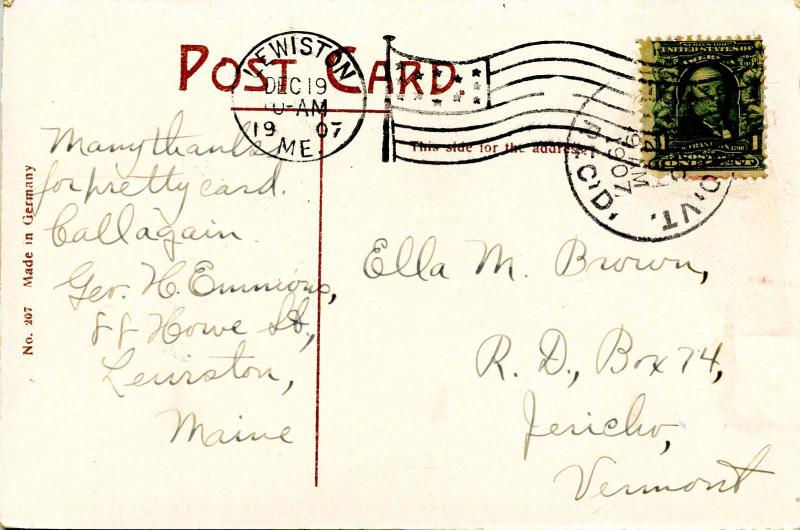 POST CARD.
LEWISTON
DEC 19
10-AM
1907
ME.
This side for the address
REC'D.
1907
VT.
SERIES 1902
UNITED STATES OF
AMERICA
FRANKLIN
1
ONE CENT
Many thanks
for pretty card.
Call again.
Geo. H. Emmons,
88 Howe St,
Lewiston,
Maine
Ella M. Brown,
R. D., Box 74,
Jericho,
Vermont
No. 207 Made in Germany